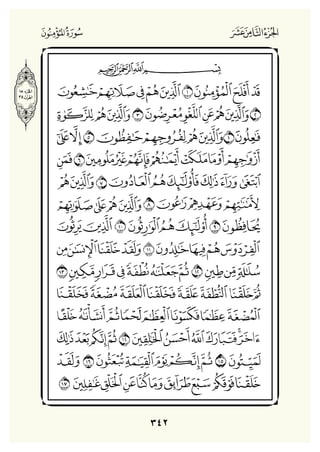 الجزء الثامن عشر
سورة المؤمنون
بسم الله الرحمن الرحيم
قد أفلح المؤمنون ١ الذين هم في صلاتهم خاشعون
٢ والذين هم عن اللغو معرضون ٣ والذين هم للزكوة
فاعلون ٤ والذين هم لفروجهم حافظون ٥ إلا على
أزواجهم أو ما ملكت أيمانهم فإنهم غير ملومين ٦ فمن
ابتغى وراء ذلك فأولئك هم العادون ٧ والذين هم
لأماناتهم وعهدهم راعون ٨ والذين هم على صلواتهم
يحافظون ٩ أولئك هم الوارثون ١٠ الذين يرثون
الفردوس هم فيها خالدون ١١ ولقد خلقنا الإنسان من
سلالة من طين ١٢ ثم جعلناه نطفة في قرار مكين ١٣
ثم خلقنا النطفة علقة فخلقنا العلقة مضغة فخلقنا
المضغة عظاما فكسونا العظام لحما ثم أنشأناه خلقا
ءاخر فتبارك الله أحسن الخالقين ١٤ ثم إنكم بعد ذلك
لميتون ١٥ ثم إنكم يوم القيامة تبعثون ١٦ ولقد
خلقنا فوقكم سبع طرائق وما كنا عن الخلق غافلين ١٧
٣٤٢